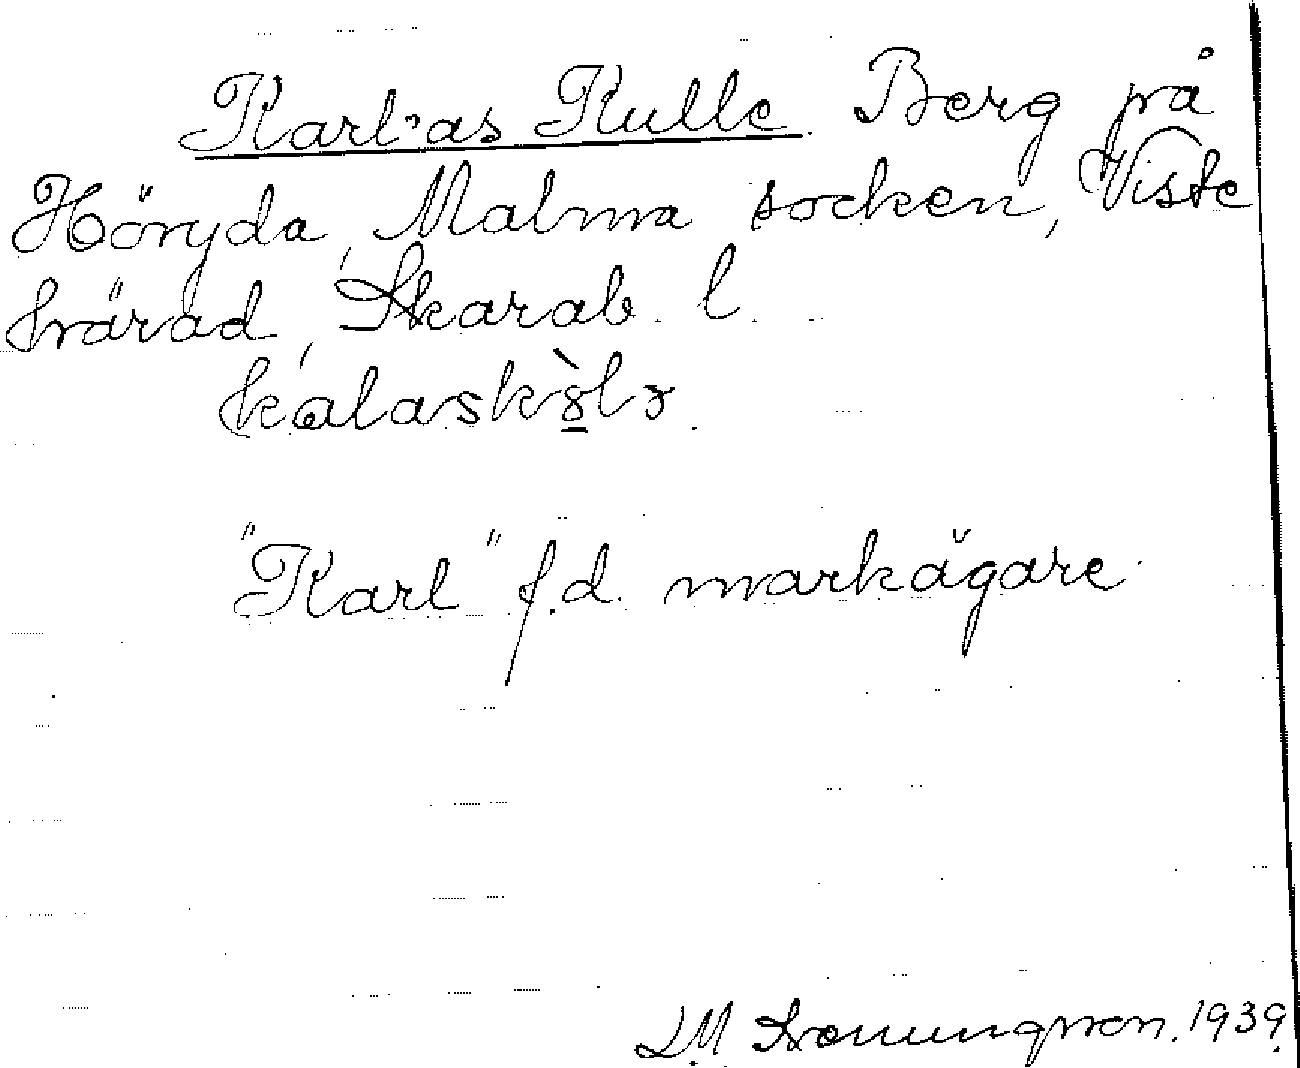 Karl:as Kulle. Berg på
Höryda, Malma socken, Viste
härad, Skarab. l.
"Karl" f.d. markägare.
L.M. 1939.